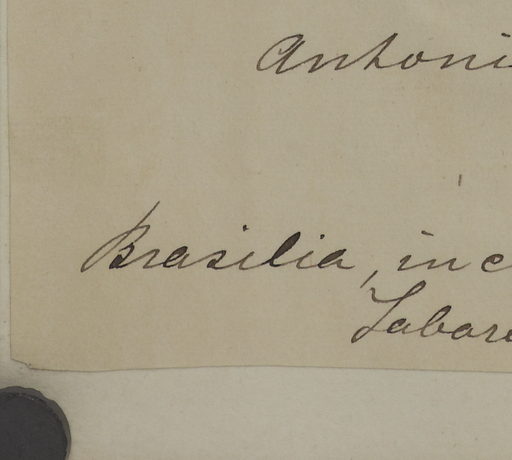 Antoni
Brasilia, in c
Tabare